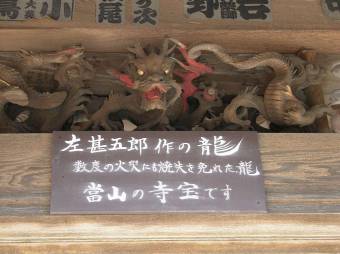 左甚五郎作の龍
数度の火災にも焼失を免れた龍
當山の寺宝です